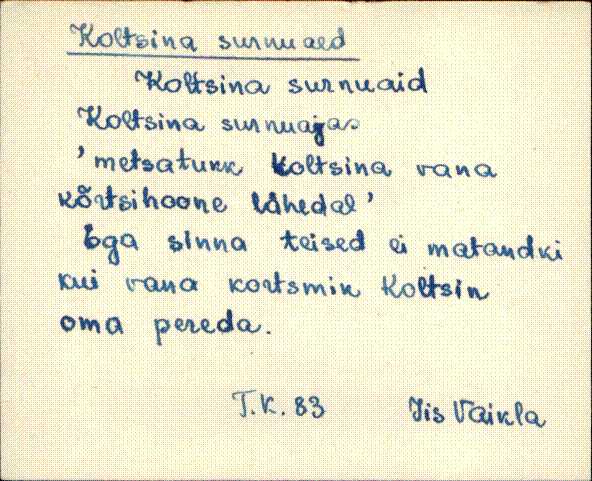 Koltsina surnuaed
Koltsina surnuaid
Koltsina surnuajas
'metsatukk Koltsina vana
kõrtsihoone lähedal'
Ega sinna teised ei matandki
kui vana kortsmin Koltsin
oma pereda.
T.K. 83 Iis Vaikla